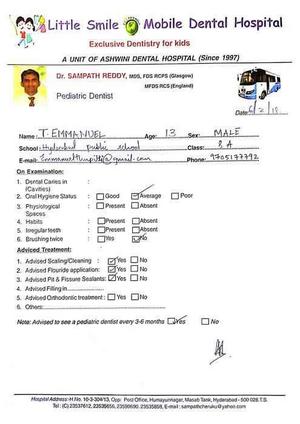 Little Smile Mobile Dental Hospital
Exclusive Dentistry for kids
A UNIT OF ASHWINI DENTAL HOSPITAL (Since 1997)
Dr. SAMPATH REDDY, MDS, FDS RCPS (Glasgow)
MFDS RCS (England)
Pediatric Dentist
Date: 6/2/18
Name: T. EMMANUEL Age: 13 Sex: MALE
School: Hyderabad public school Class: 8 A
E-mail: @gmail.com Phone: 9705177792
On Examination:
1. Dental Caries in :
(Cavities)
2. Oral Hygiene Status : Good Average Poor
3. Physiological : Present Absent
Spaces
4. Habits : Present Absent
5. Irregular teeth : Present Absent
6. Brushing twice : Yes No
Adviced Treatment:
1. Advised Scaling/Cleaning : Yes No
2. Advised Flouride application: Yes No
3. Advised Pit & Fissure Sealants: Yes No
4. Advised Filling in
5. Advised Orthodontic treatment : Yes No
6. Others:
Note: Advised to see a pediatric dentist every 3-6 months Yes No
Hospital Address: H.No. 10-3-304/13, Opp: Post Office, Humayunnagar, Masab Tank, Hyderabad - 500 028.T.S.
Tel: (C) 23537612, 23535656, 23590690, 23535858, E-mail : sampathcheruku@yahoo.com